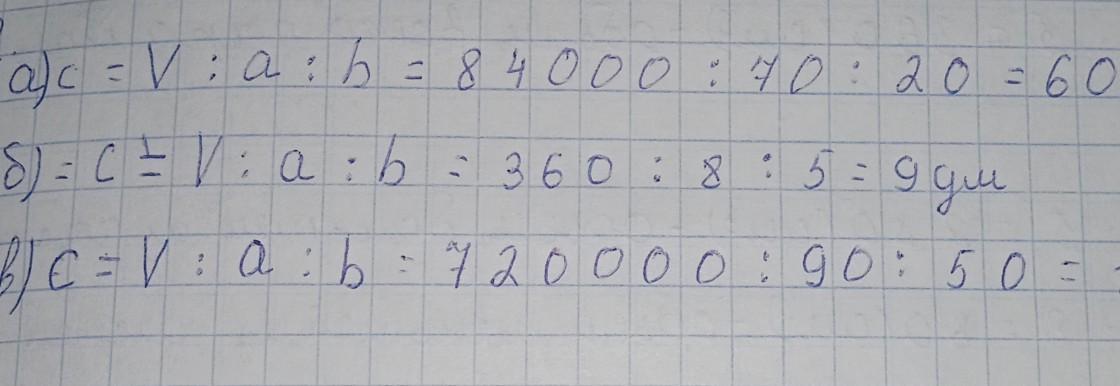 а) c = V : a : b = 84000 : 70 : 20 = 60
б) = c = V : a : b = 360 : 8 : 5 = 9 дм
в) c = V : a : b = 720000 : 90 : 50 =